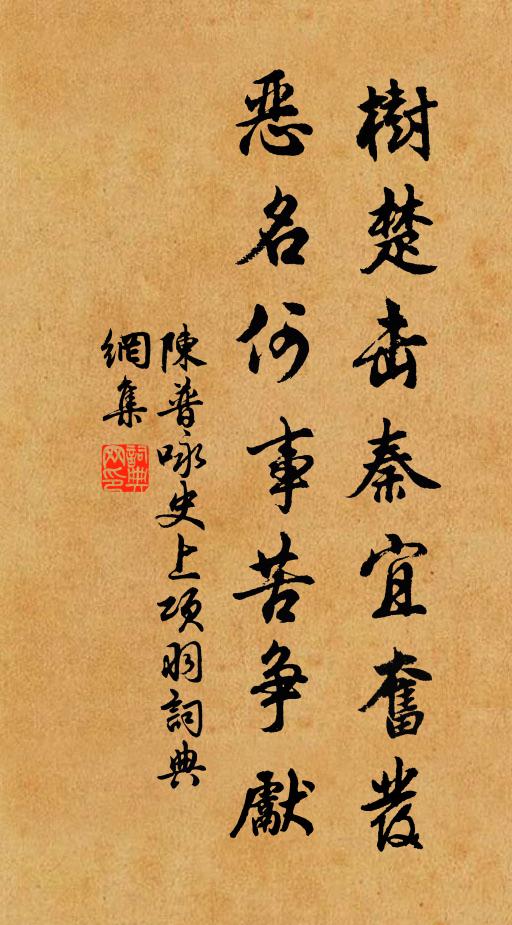 樹楚击秦宜奮發
惡名何事苦爭獻
陳普咏史上項羽詞典
網集
詞典
網印